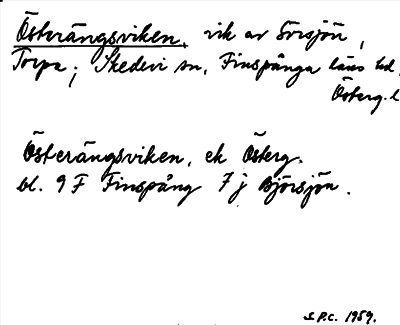 Österängsviken, vik av Sörsjön,
Torpa; Skedevi sn, Finspånga läns hd,
Österg.l
Österängsviken, ek Österg.
bl. 9 F Finspång 7 j Björsjön.
S.P.C. 1959.